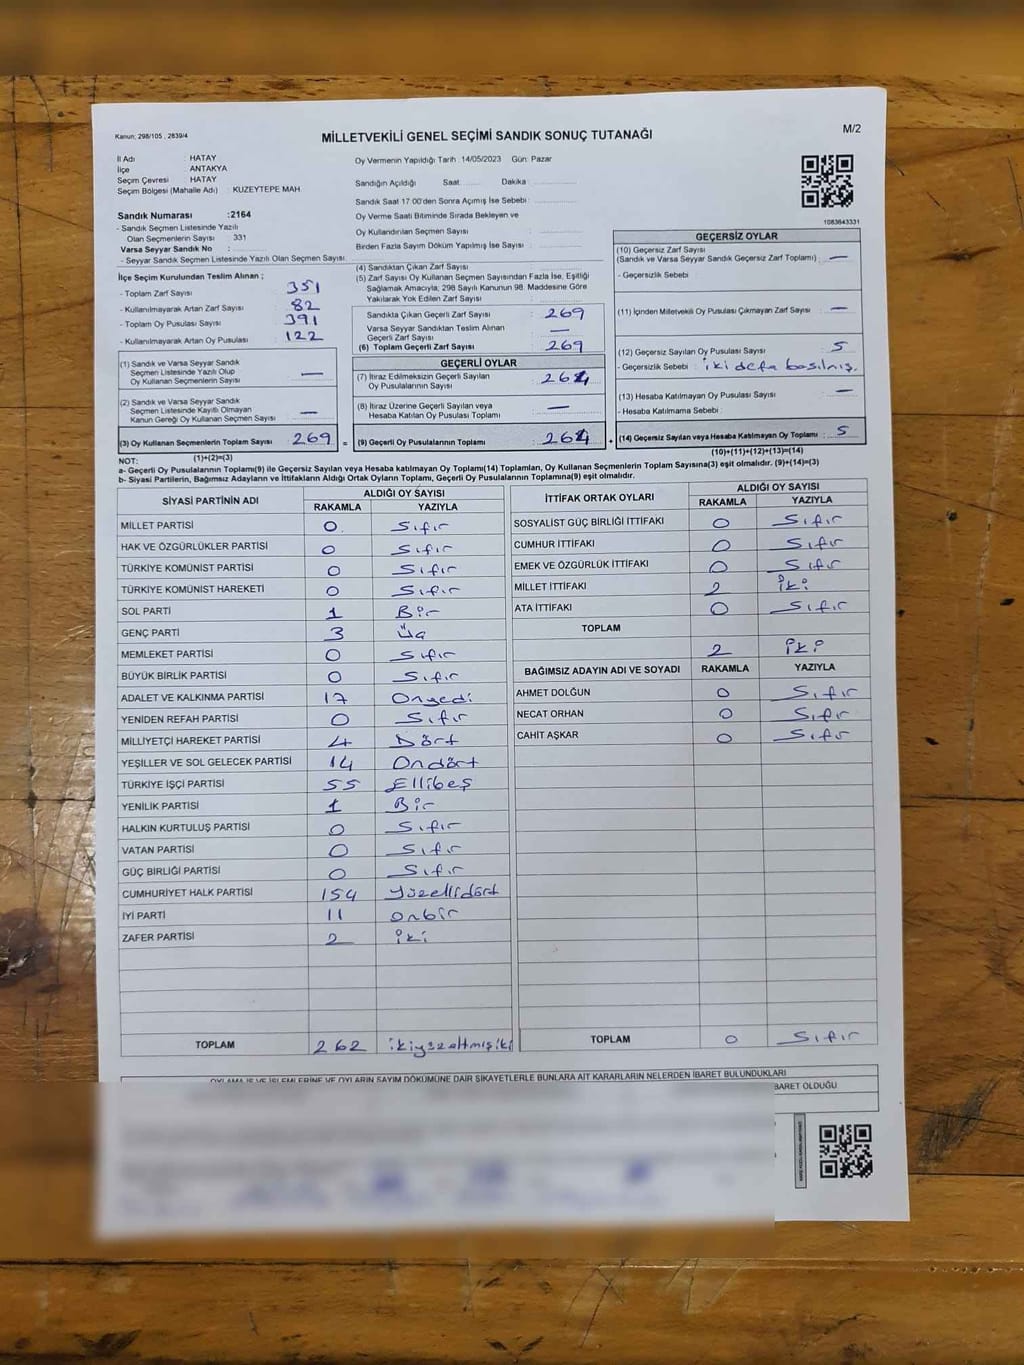 Kanun; 298/105 , 2839/4
MİLLETVEKİLİ GENEL SEÇİMİ SANDIK SONUÇ TUTANAĞI
M/2
İl Adı : HATAY
İlçe : ANTAKYA
Seçim Çevresi : HATAY
Seçim Bölgesi (Mahalle Adı) : KUZEYTEPE MAH
Sandık Numarası :2164
- Sandık Seçmen Listesinde Yazılı
Olan Seçmenlerin Sayısı : 331
Varsa Seyyar Sandık No :
- Seyyar Sandık Seçmen Listesinde Yazılı Olan Seçmen Sayısı:
İlçe Seçim Kurulundan Teslim Alınan ;
- Toplam Zarf Sayısı : 351
- Kullanılmayarak Artan Zarf Sayısı : 82
- Toplam Oy Pusulası Sayısı : 391
- Kullanılmayarak Artan Oy Pusulası : 122
(1) Sandık ve Varsa Seyyar Sandık
Seçmen Listesinde Yazılı Olup
Oy Kullanan Seçmenlerin Sayısı : —
(2) Sandık ve Varsa Seyyar Sandık
Seçmen Listesinde Kayıtlı Olmayan
Kanun Gereği Oy Kullanan Seçmen Sayısı : —
(3) Oy Kullanan Seçmenlerin Toplam Sayısı : 269 =
(1)+(2)=(3)
Oy Vermenin Yapıldığı Tarih : 14/05/2023 Gün: Pazar
Sandığın Açıldığı Saat: Dakika :
Sandık Saat 17.00'den Sonra Açımış İse Sebebi :
Oy Verme Saati Bitiminde Sırada Bekleyen ve
Oy Kullandırılan Seçmen Sayısı :
Birden Fazla Sayım Döküm Yapılmış İse Sayısı :
(4) Sandıktan Çıkan Zarf Sayısı :
(5) Zarf Sayısı Oy Kullanan Seçmen Sayısından Fazla İse, Eşitliği
Sağlamak Amacıyla, 298 Sayılı Kanunun 98. Maddesine Göre
Yakılarak Yok Edilen Zarf Sayısı :
Sandıkta Çıkan Geçerli Zarf Sayısı : 269
Varsa Seyyar Sandıktan Teslim Alınan
Geçerli Zarf Sayısı : —
(6) Toplam Geçerli Zarf Sayısı : 269
GEÇERLİ OYLAR
(7) İtiraz Edilmeksizin Geçerli Sayılan
Oy Pusulalarının Sayısı : 264
(8) İtiraz Üzerine Geçerli Sayılan veya
Hesaba Katılan Oy Pusulası Toplamı : —
(9) Geçerli Oy Pusulalarının Toplamı : 264 +
1083643331
GEÇERSİZ OYLAR
(10) Geçersiz Zarf Sayısı
(Sandık ve Varsa Seyyar Sandık Geçersiz Zarf Toplamı) : —
- Geçersizlik Sebebi :
(11) İçinden Milletvekili Oy Pusulası Çıkmayan Zarf Sayısı : —
(12) Geçersiz Sayılan Oy Pusulası Sayısı : 5
- Geçersizlik Sebebi : iki defa basılmış.
(13) Hesaba Katılmayan Oy Pusulası Sayısı : —
- Hesaba Katılmama Sebebi :
(14) Geçersiz Sayılan veya Hesaba Katılmayan Oy Toplamı : 5
(10)+(11)+(12)+(13)=(14)
NOT:
a- Geçerli Oy Pusulalarının Toplamı(9) ile Geçersiz Sayılan veya Hesaba katılmayan Oy Toplamı(14) Toplamları, Oy Kullanan Seçmenlerin Toplam Sayısına(3) eşit olmalıdır. (9)+(14)=(3)
b- Siyasi Partilerin, Bağımsız Adayların ve İttifakların Aldığı Ortak Oyların Toplamı, Geçerli Oy Pusulalarının Toplamına(9) eşit olmalıdır.
SİYASİ PARTİNİN ADI ALDIĞI OY SAYISI
RAKAMLA YAZIYLA
MİLLET PARTİSİ 0 Sıfır
HAK VE ÖZGÜRLÜKLER PARTİSİ 0 Sıfır
TÜRKİYE KOMÜNİST PARTİSİ 0 Sıfır
TÜRKİYE KOMÜNİST HAREKETİ 0 Sıfır
SOL PARTİ 1 Bir
GENÇ PARTİ 3 Üç
MEMLEKET PARTİSİ 0 Sıfır
BÜYÜK BİRLİK PARTİSİ 0 Sıfır
ADALET VE KALKINMA PARTİSİ 17 Onyedi
YENİDEN REFAH PARTİSİ 0 Sıfır
MİLLİYETÇİ HAREKET PARTİSİ 4 Dört
YEŞİLLER VE SOL GELECEK PARTİSİ 14 Ondört
TÜRKİYE İŞÇİ PARTİSİ 55 Ellibeş
YENİLİK PARTİSİ 1 Bir
HALKIN KURTULUŞ PARTİSİ 0 Sıfır
VATAN PARTİSİ 0 Sıfır
GÜÇ BİRLİĞİ PARTİSİ 0 Sıfır
CUMHURİYET HALK PARTİSİ 154 Yüzellidört
İYİ PARTİ 11 onbir
ZAFER PARTİSİ 2 iki
TOPLAM 262 ikiyüzaltmışiki
İTTİFAK ORTAK OYLARI ALDIĞI OY SAYISI
RAKAMLA YAZIYLA
SOSYALİST GÜÇ BİRLİĞİ İTTİFAKI 0 Sıfır
CUMHUR İTTİFAKI 0 Sıfır
EMEK VE ÖZGÜRLÜK İTTİFAKI 0 Sıfır
MİLLET İTTİFAKI 2 iki
ATA İTTİFAKI 0 Sıfır
TOPLAM 2 iki
BAĞIMSIZ ADAYIN ADI VE SOYADI RAKAMLA YAZIYLA
AHMET DOLĞUN 0 Sıfır
NECAT ORHAN 0 Sıfır
CAHİT AŞKAR 0 Sıfır
TOPLAM 0 Sıfır
OYLAMA İŞ VE İŞLEMLERİNE VE OYLARIN SAYIM DÖKÜMÜNE DAİR ŞİKAYETLERLE BUNLARA AİT KARARLARIN NELERDEN İBARET BULUNDUKLARI
BARET OLDUĞU